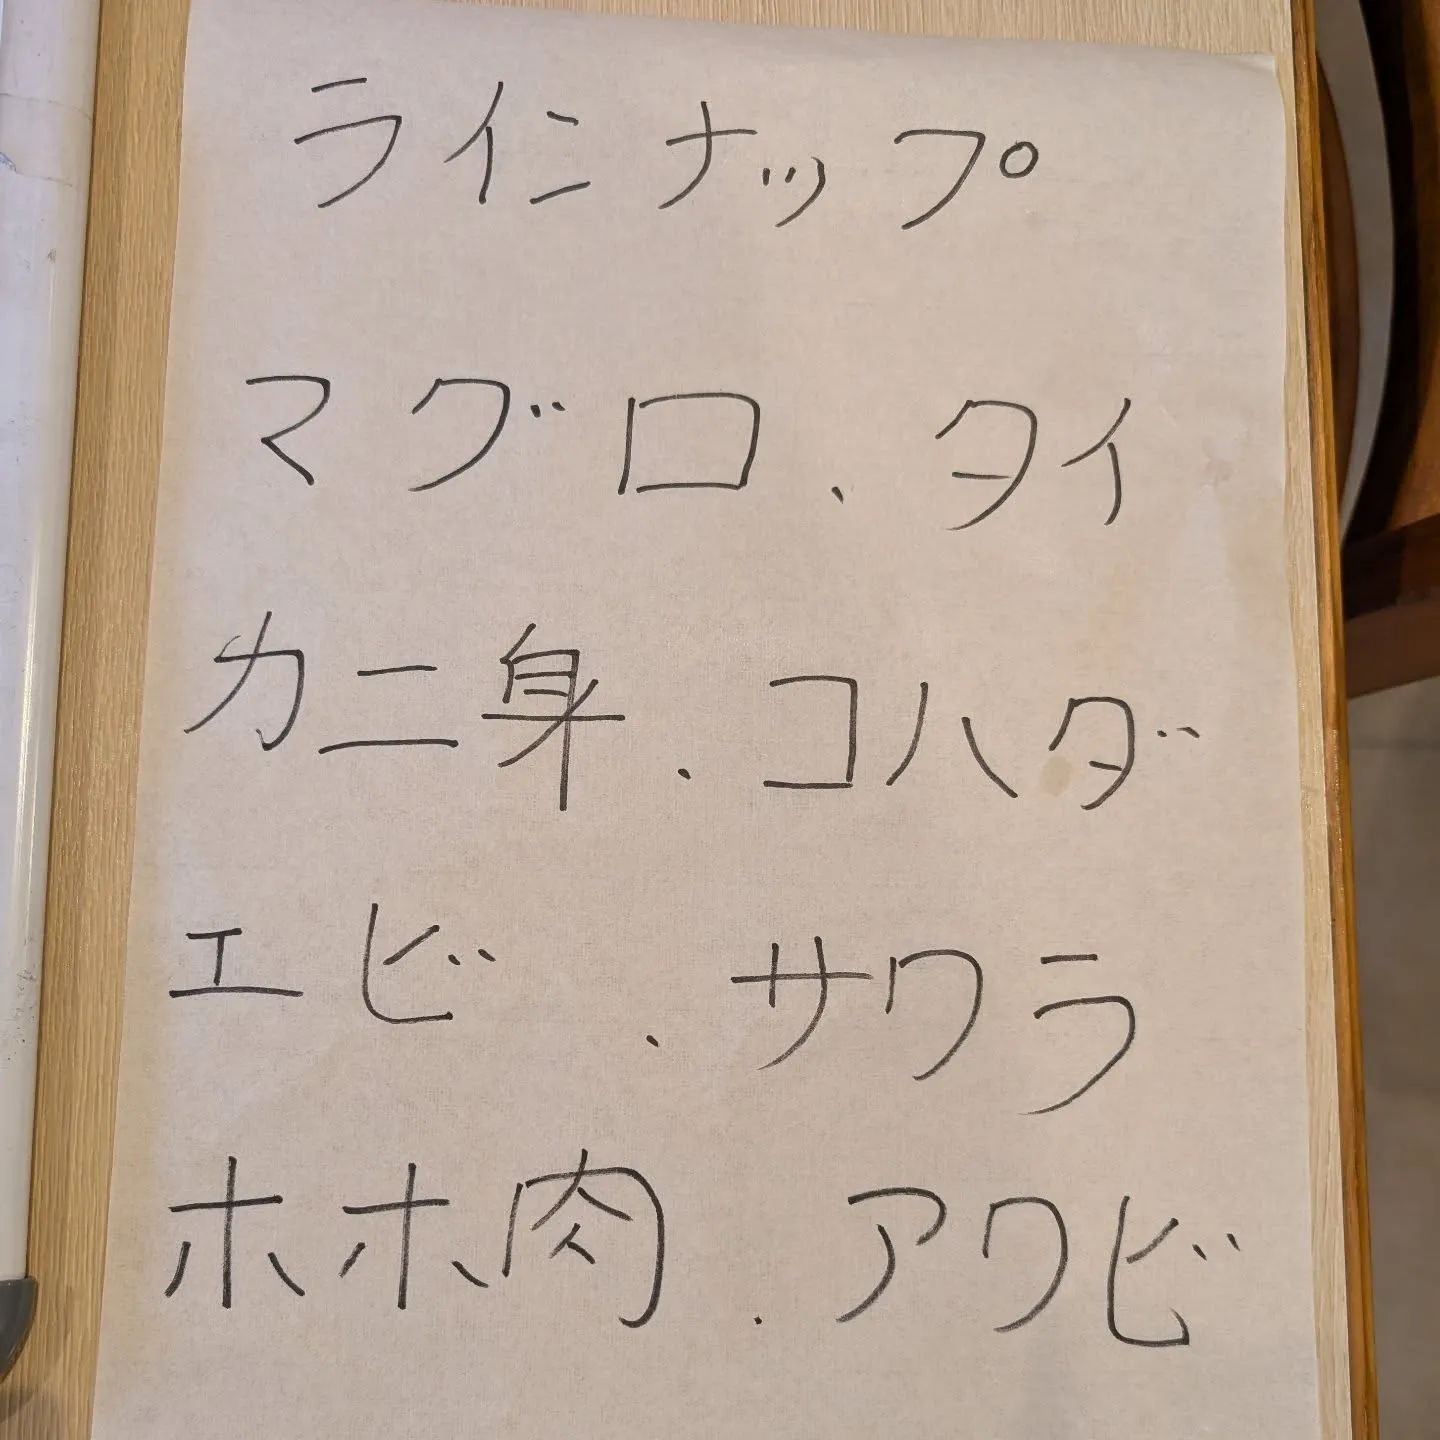 ラインナップ
マグロ、タイ
カニ身、コハダ
エビ、サワラ
ホホ肉、アワビ